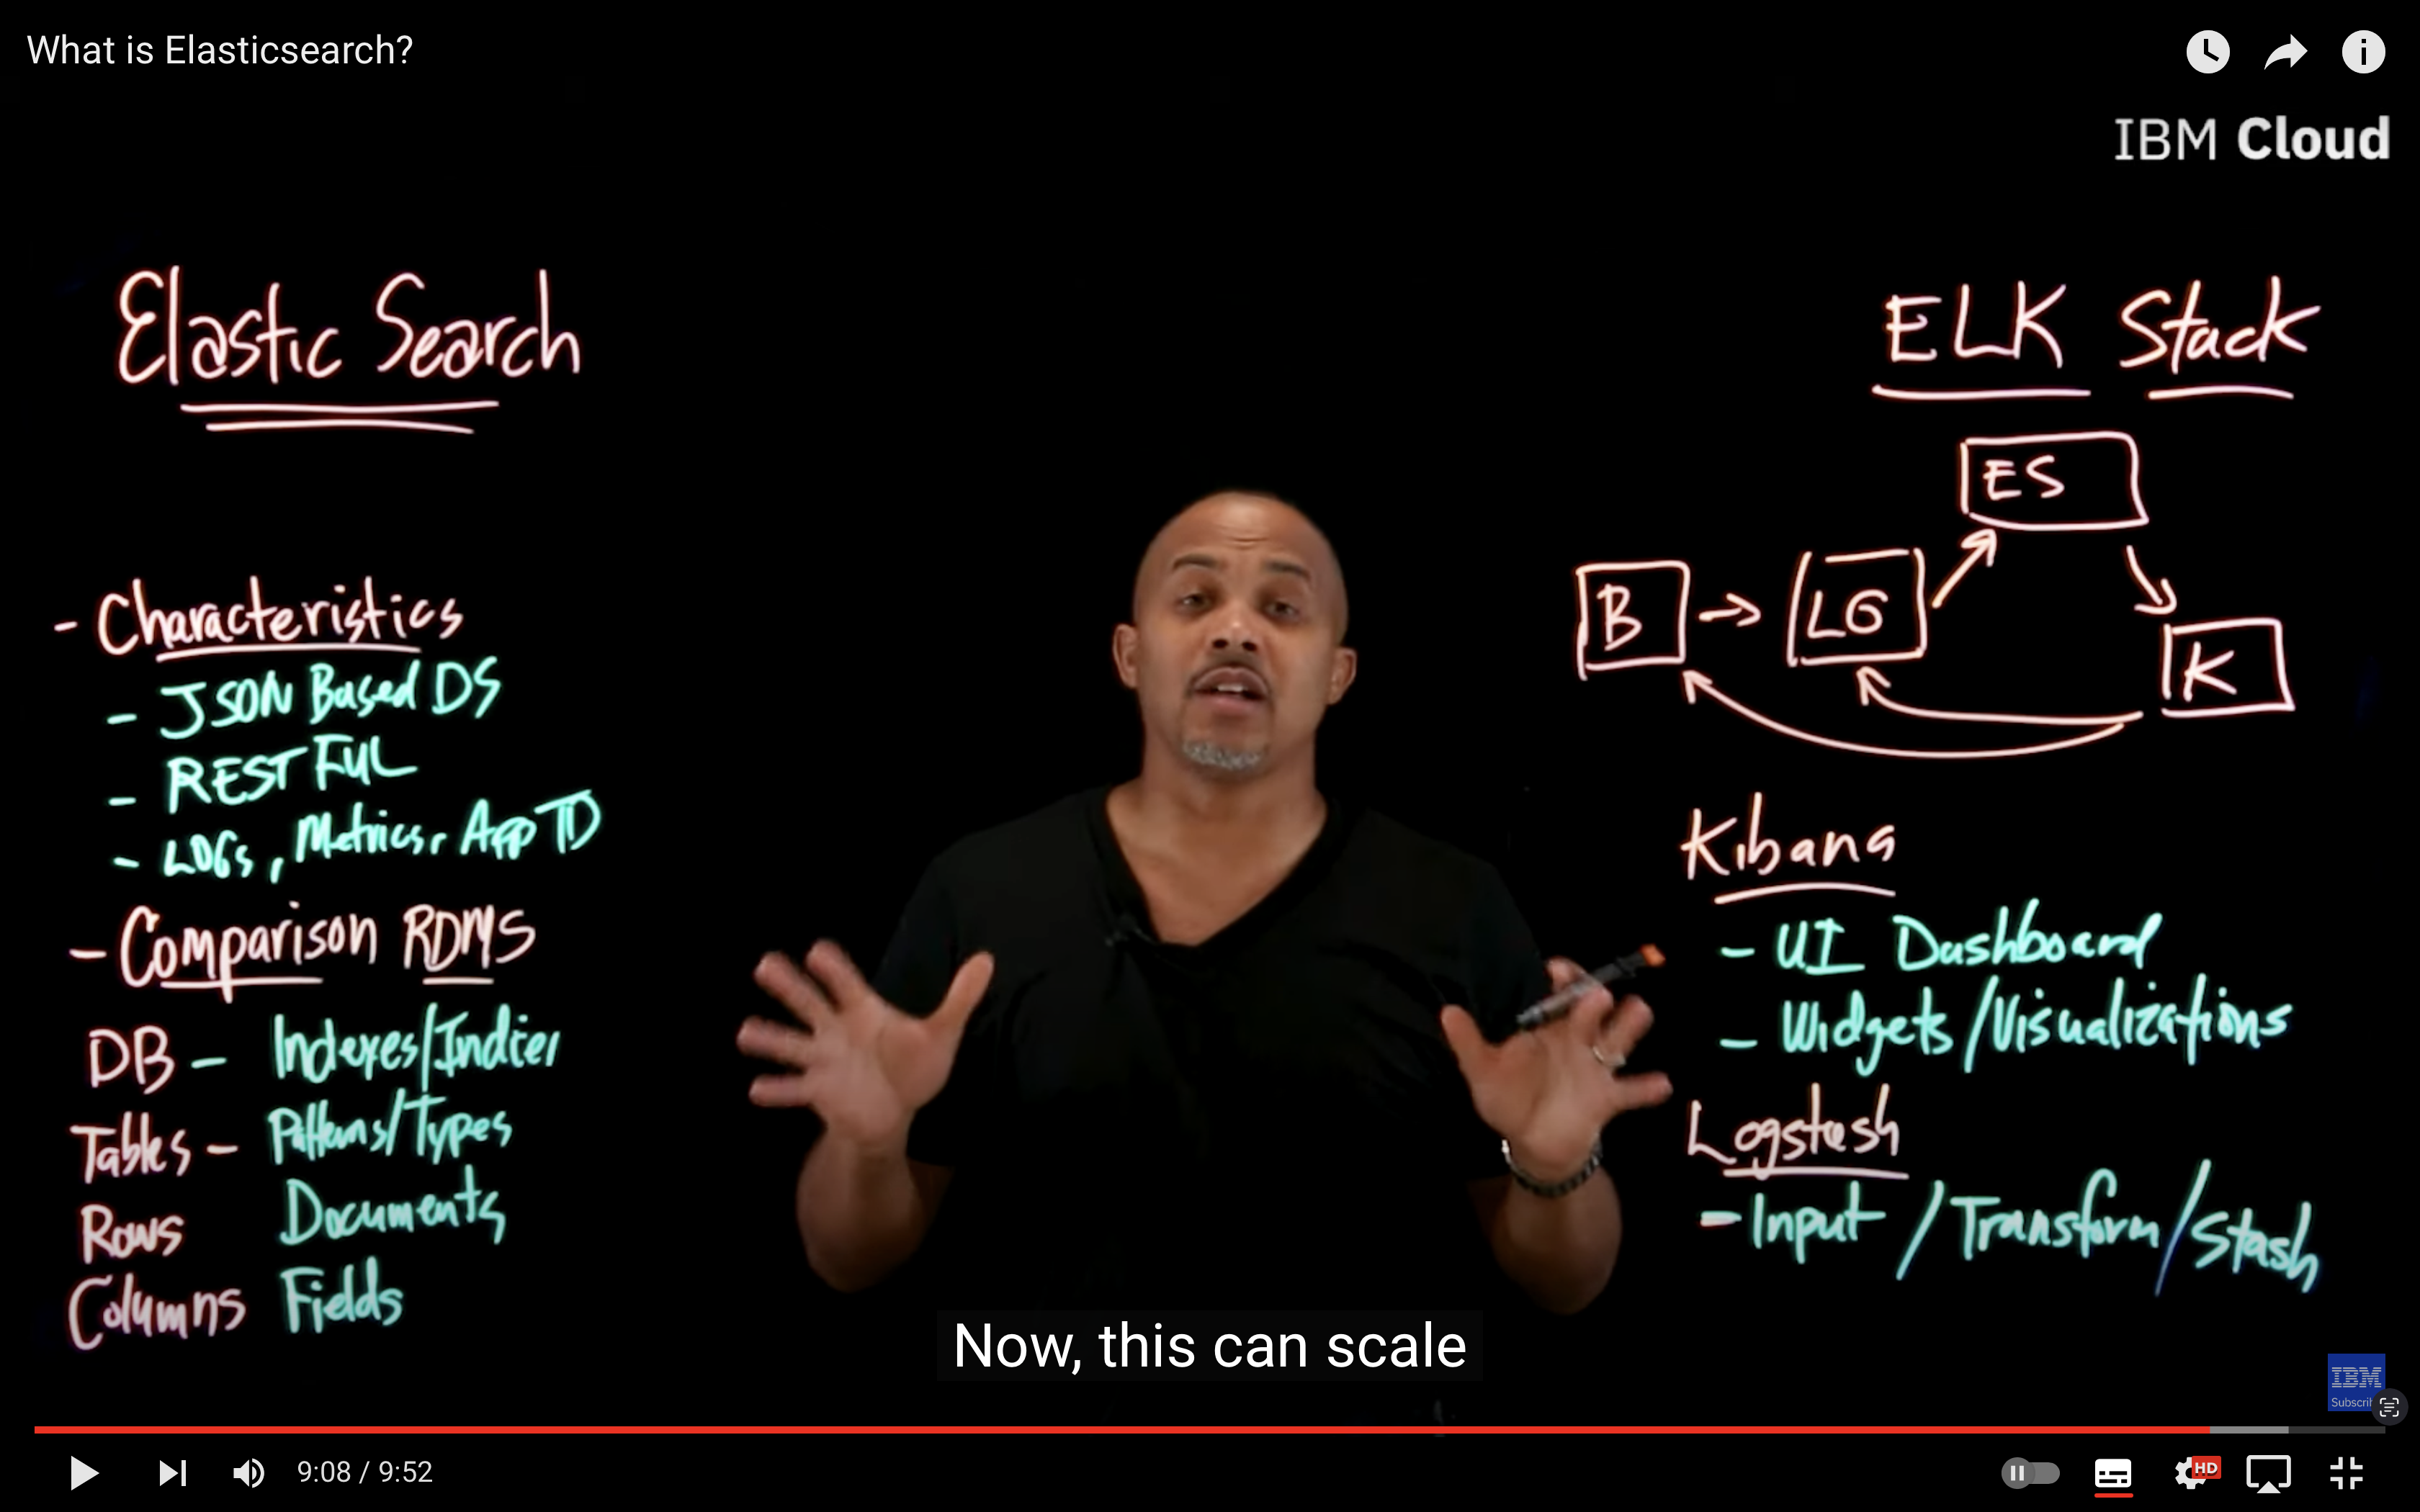 What is Elasticsearch?
IBM Cloud
Elastic Search
- Characteristics
- JSON Based DS
- RESTFUL
- LOGs, Metrics, App TD
- Comparison RDMS
DB - Indexes/Indices
Tables - Patterns/Types
Rows Documents
Columns Fields
ELK Stack
ES
B
LG
K
Kibana
- UI Dashboard
- Widgets/Visualizations
Logstash
- Input / Transform/Stash
Now, this can scale
IBM
9:08 / 9:52
HD